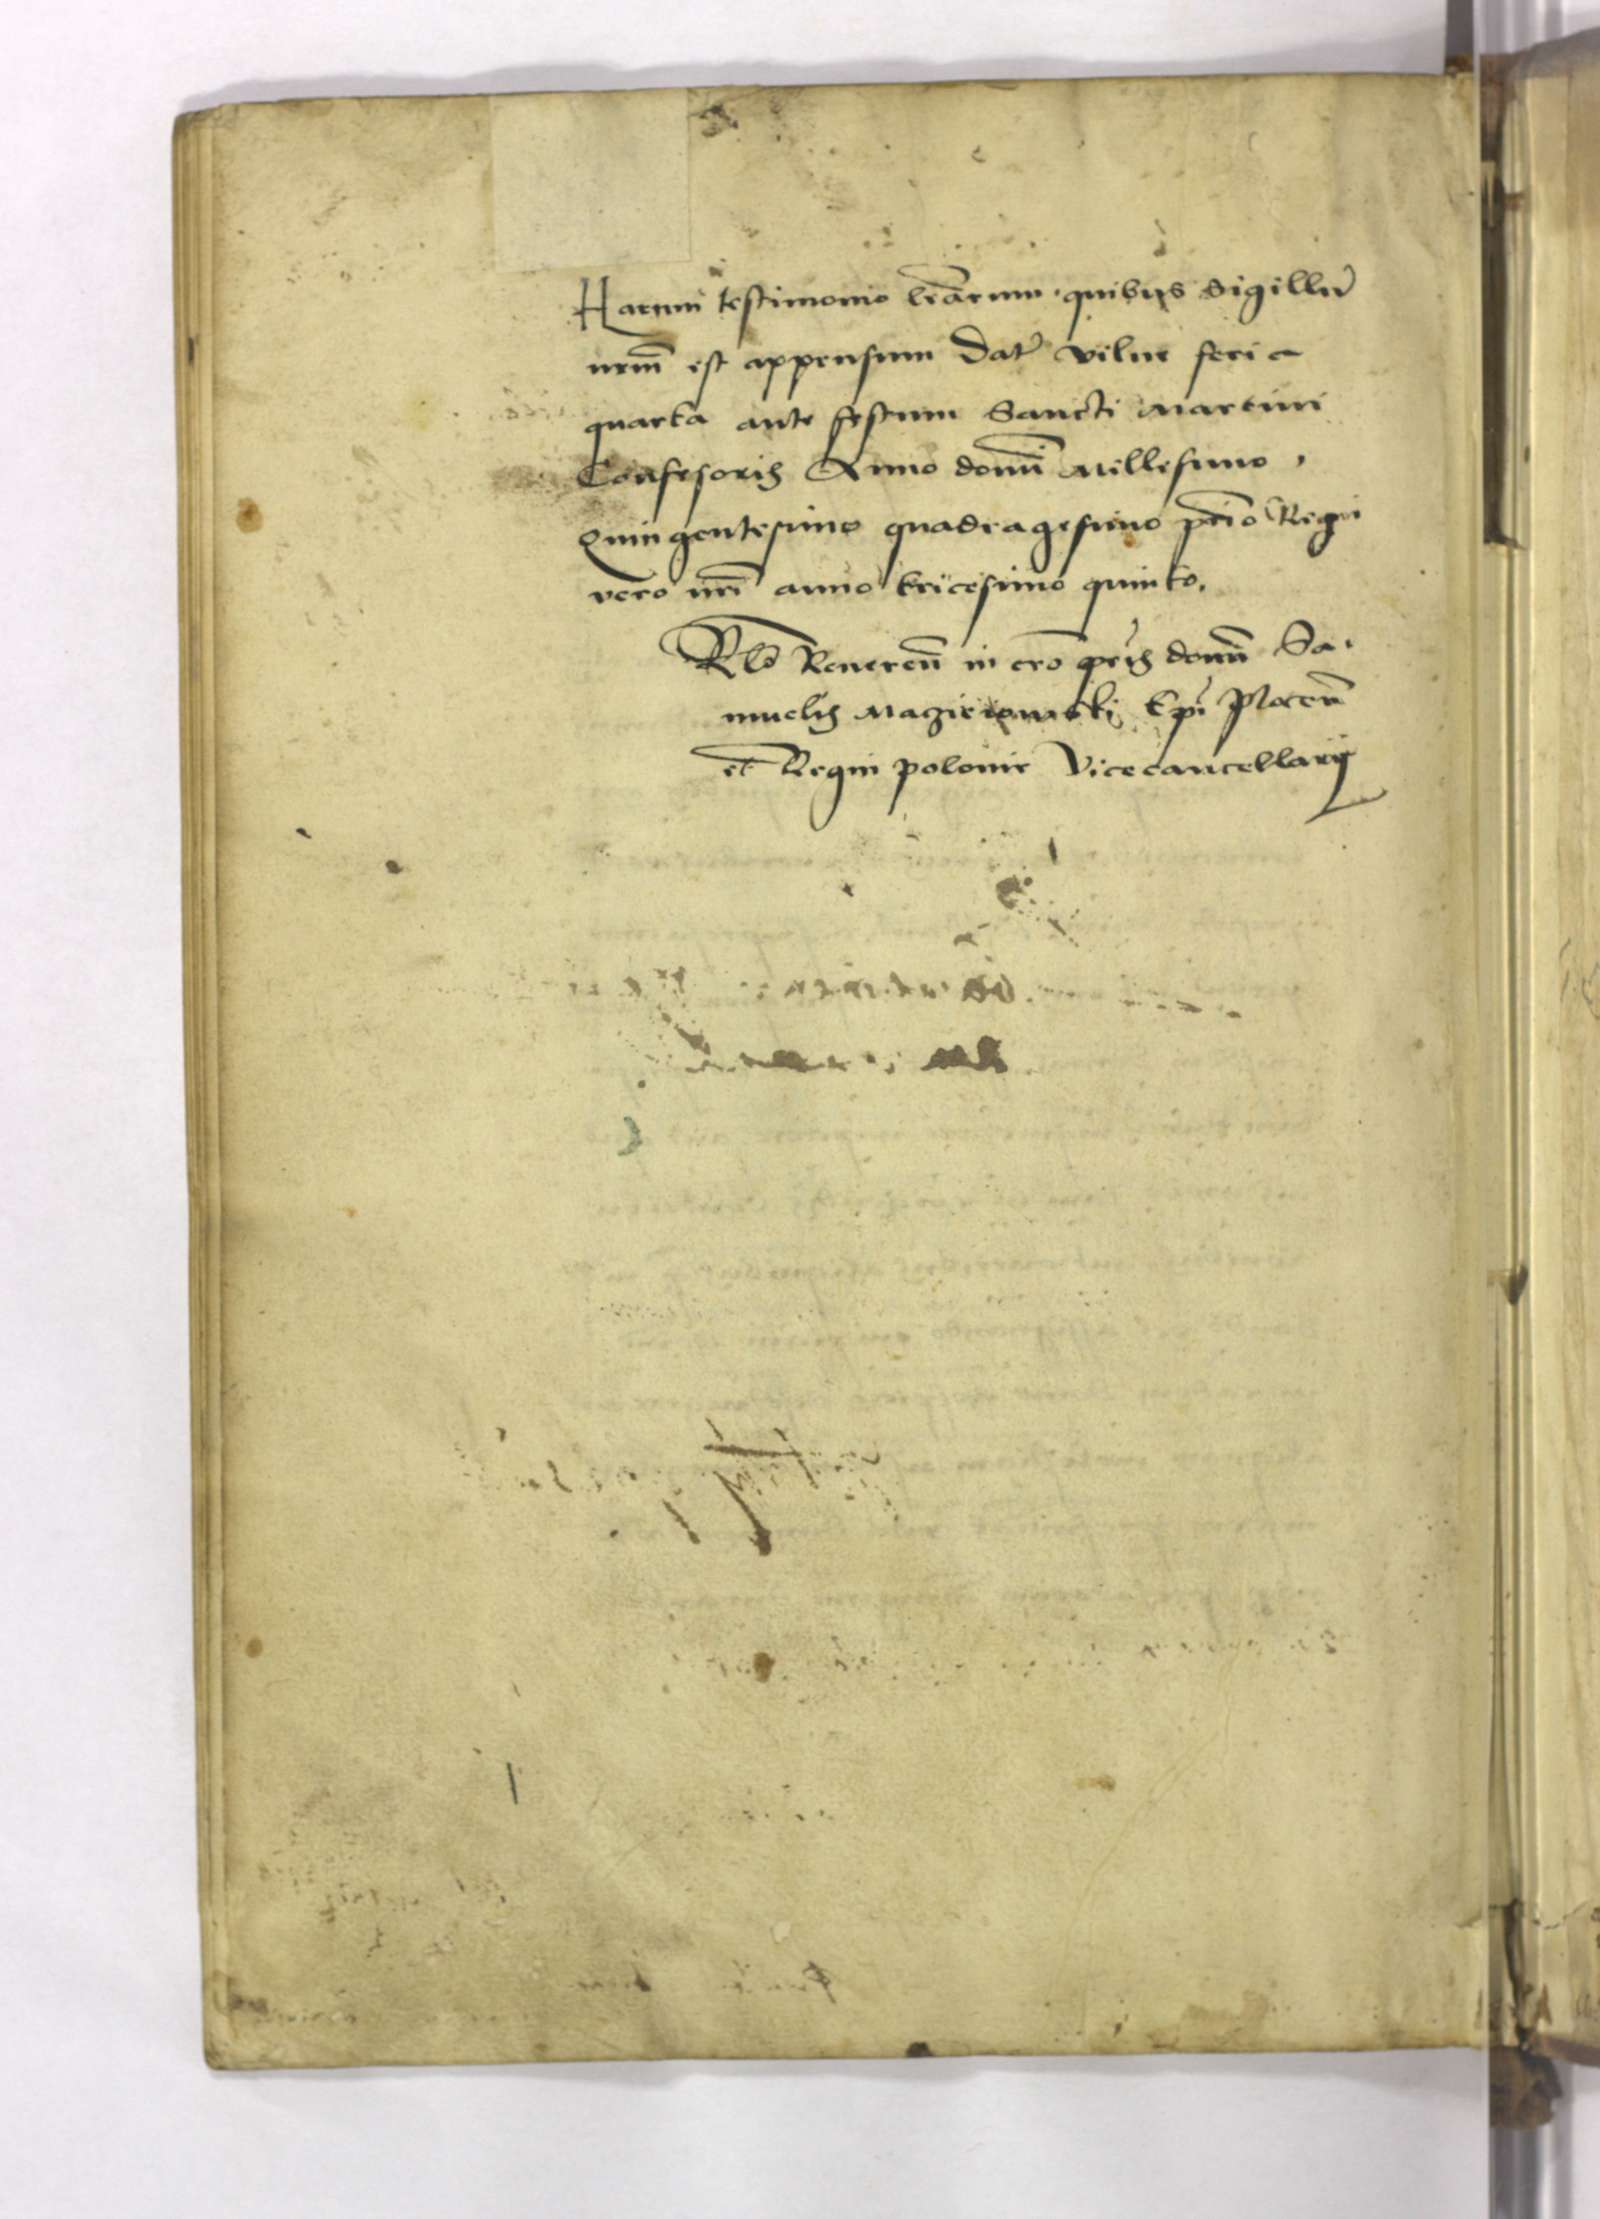 Harum testimonio lr̃arum. quibus Sigillũ
nrm̃ est appensum Dat̃ vilne feria
quarta ante festum Sancti Martini
Confesoris Anno domĩ Millesimo,
Quingentesimo quadragesimo p̃rio Regni
vero nrĩ anno tricesimo quinto.
Rl̃o Reueren̄ in cr̃o pr̃is domn̄ Sa.
muelis Macziieiowski Ep̃i Plocen̄
et Regni polonie Vicecancellarij